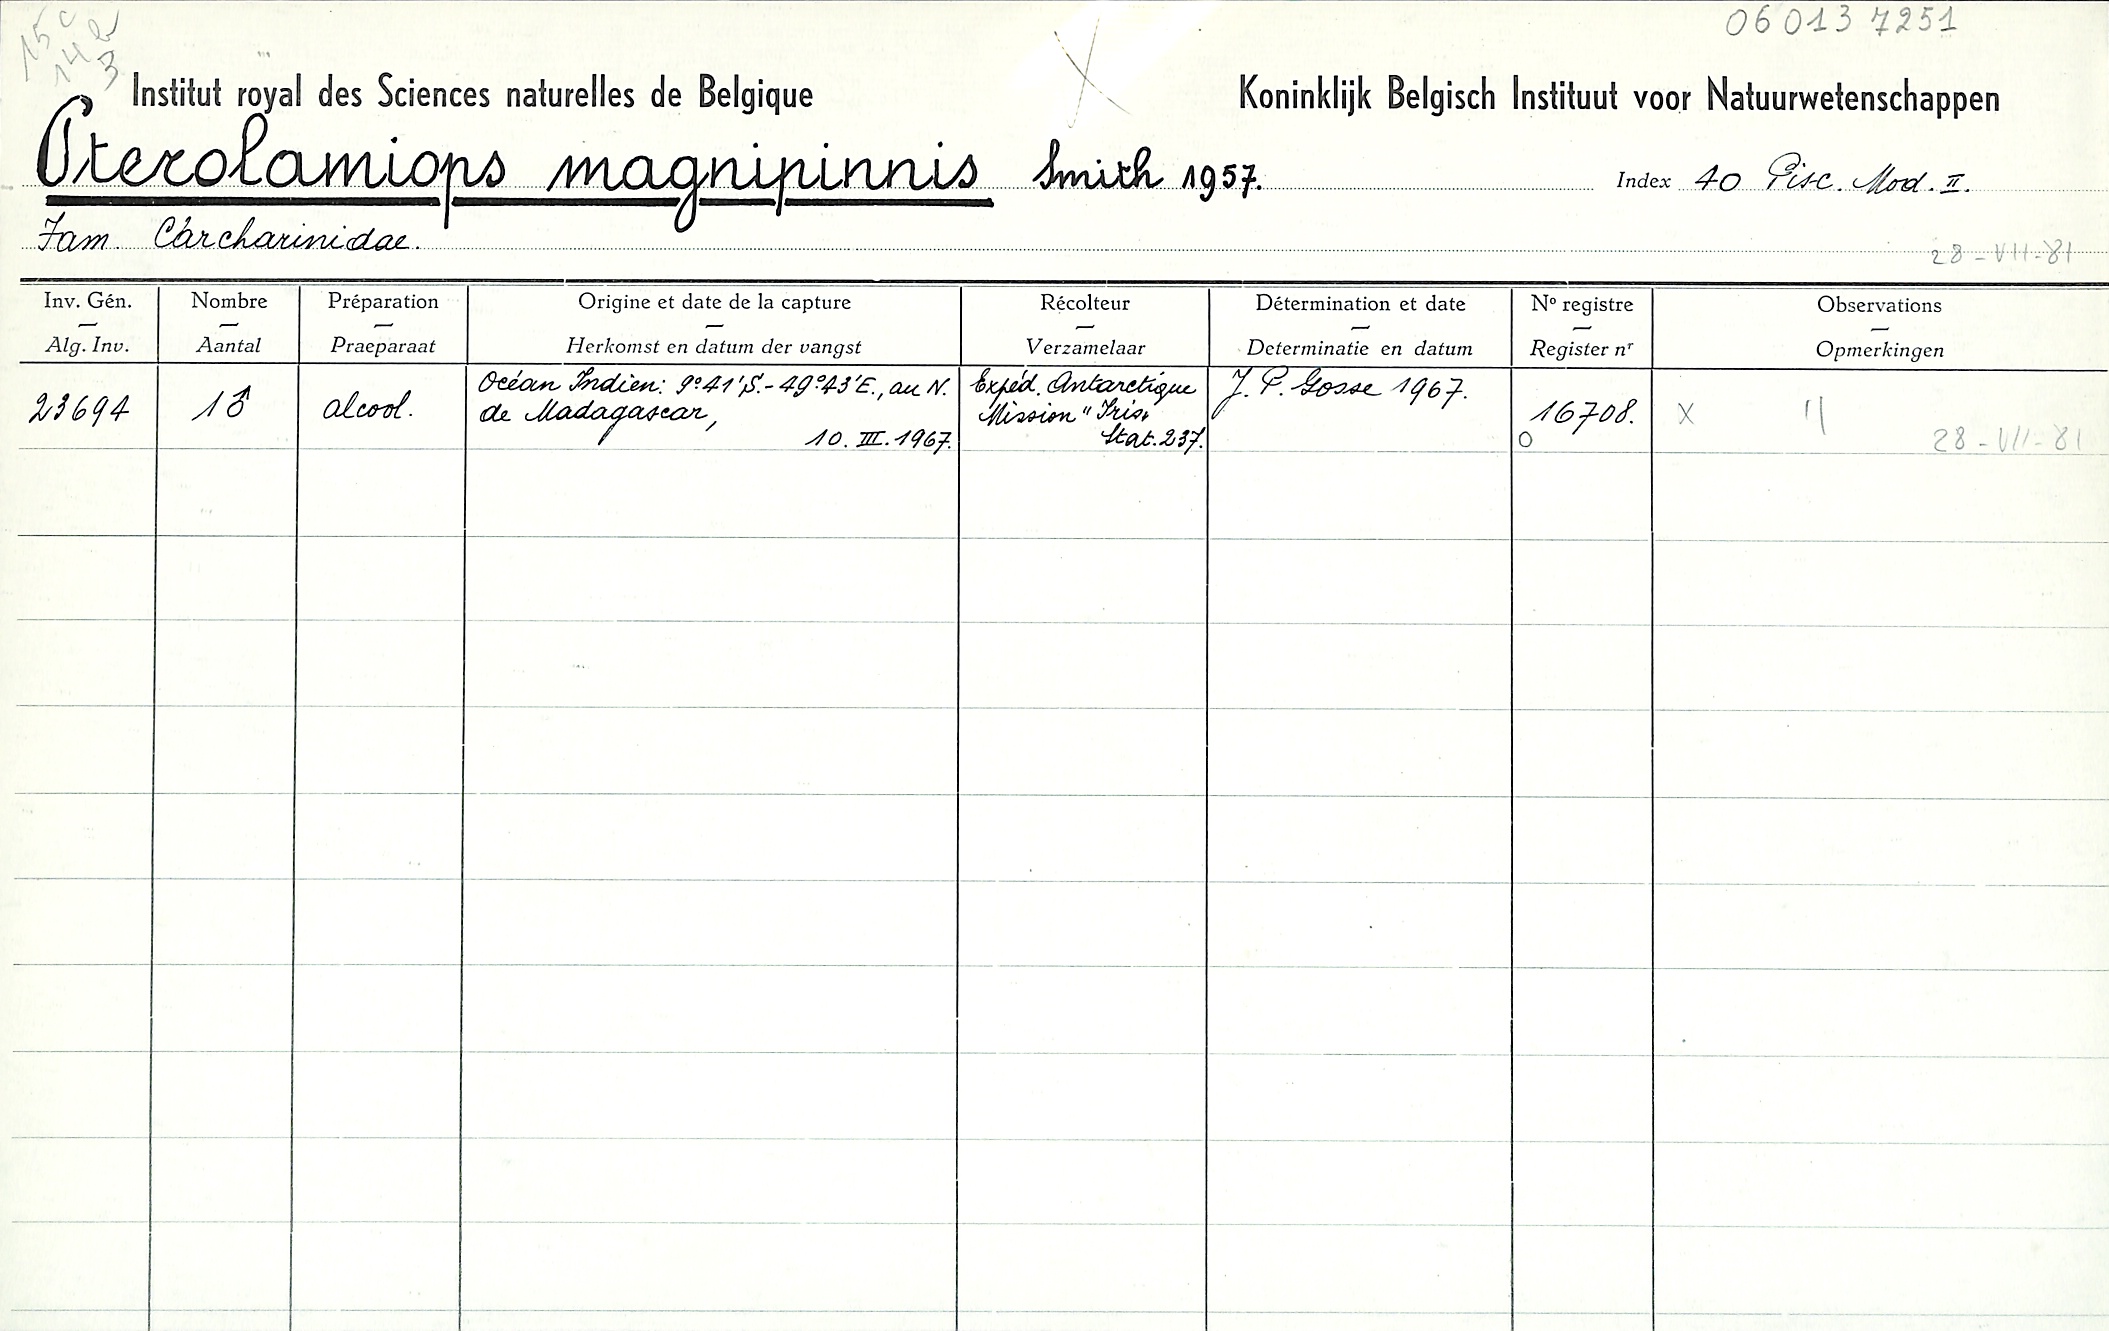 15c
14b
3
06 013 7251
Institut royal des Sciences naturelles de Belgique
Koninklijk Belgisch Instituut voor Natuurwetenschappen
Pterolamiops magnipinnis Smith 1957.
Index 40 Pisc. Mod. II.
Fam. Carcharinidae.
28-VII-81
Inv. Gén. Nombre Préparation Origine et date de la capture Récolteur Détermination et date Nº registre Observations
Alg. Inv. Aantal Praeparaat Herkomst en datum der vangst Verzamelaar Determinatie en datum Register nr Opmerkingen
23694 1♂ alcool.
Océan Indien: 9°41'S.-49°43'E., au N.
de Madagascar,
10. III. 1967.
Expéd. Antarctique
Mission "Iris"
Stat. 237.
J. P. Gosse 1967.
16708.
O
X
28-VII-81